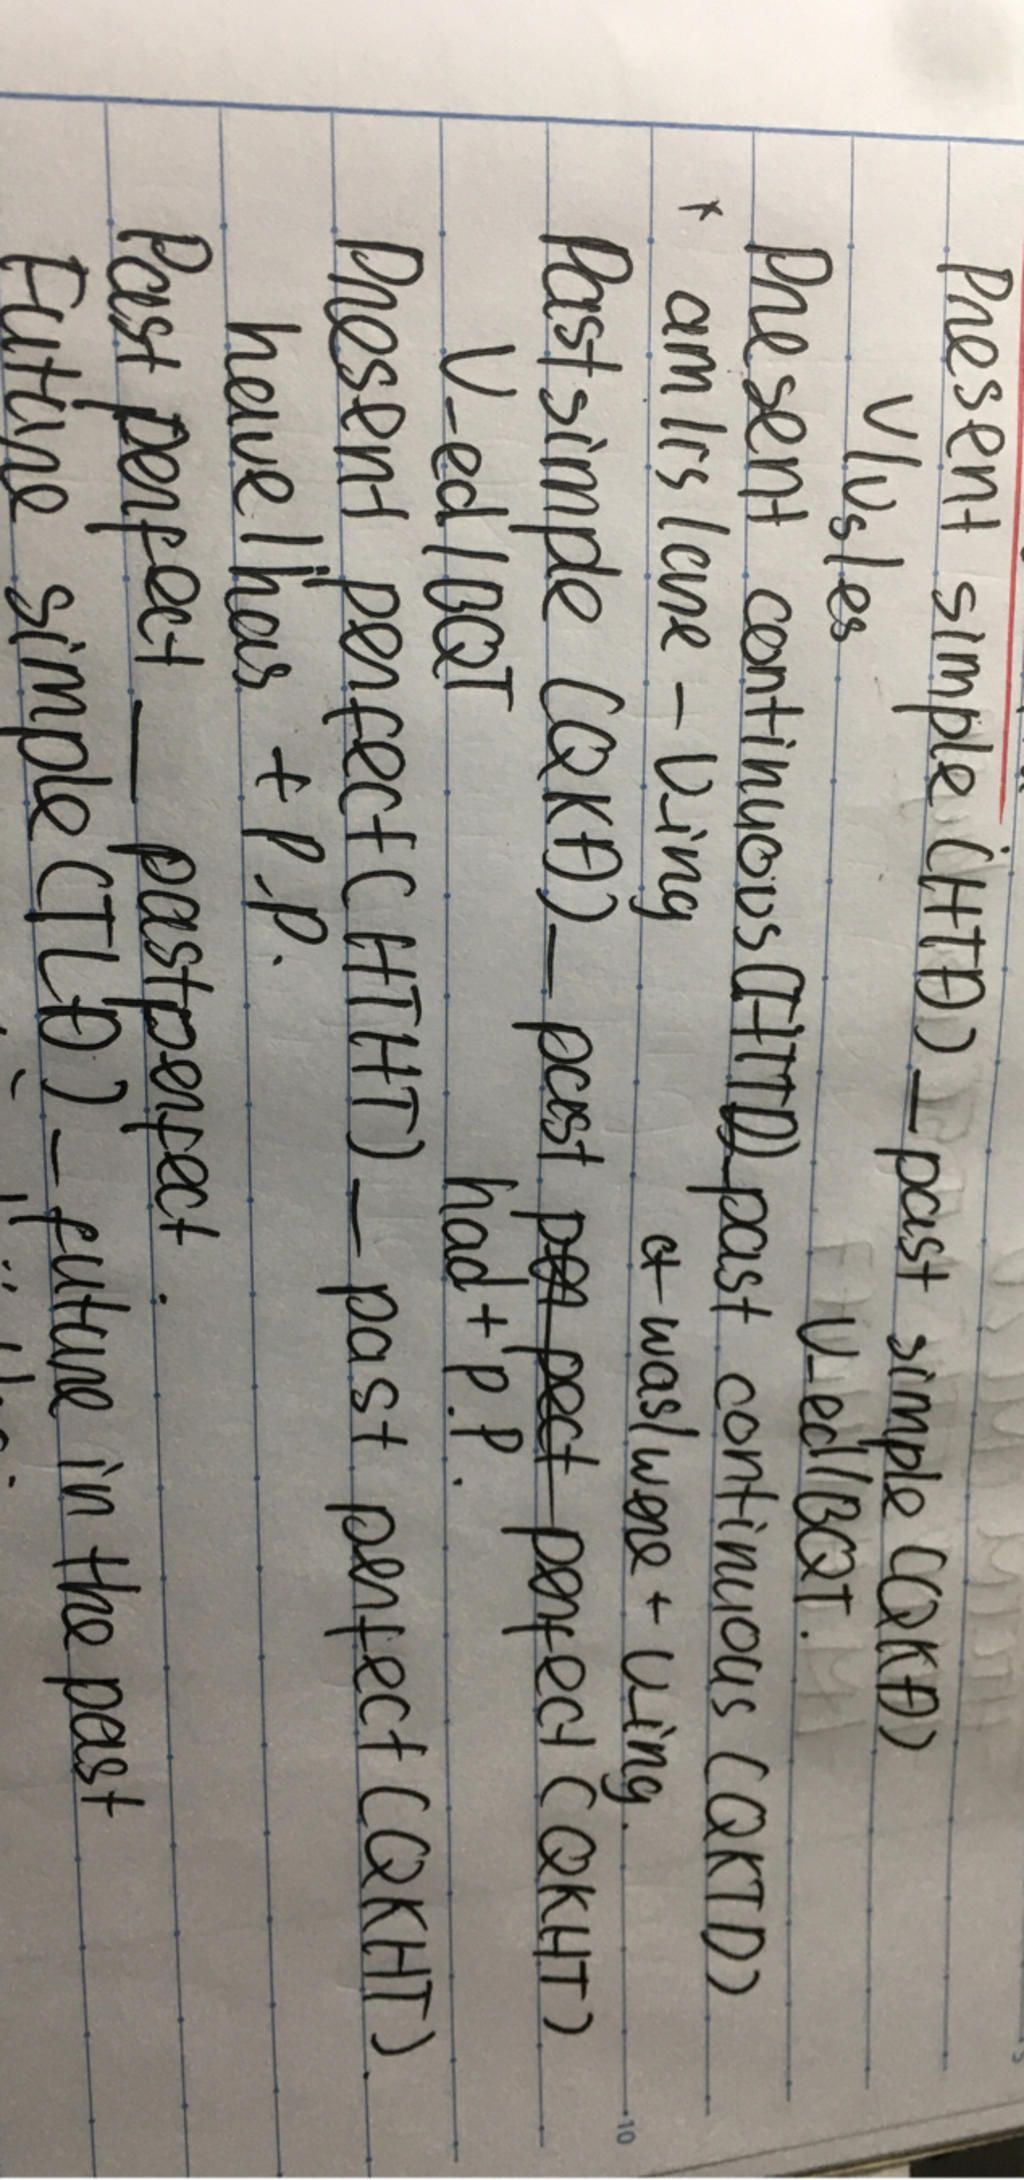 Present simple (HTĐ) – past simple (QKĐ)
V/Vs/es V-ed/BQT.
Present continuous (HTTD) – past continuous (QKTD)
* am/is/are – V-ing was/were + V-ing.
Past simple (QKĐ) – past perfect (QKHT)
V-ed/BQT had + P.P.
Present perfect (HTHT) – past perfect (QKHT)
have/has + P.P.
Past perfect – past perfect.
Future simple (TLĐ) – future in the past